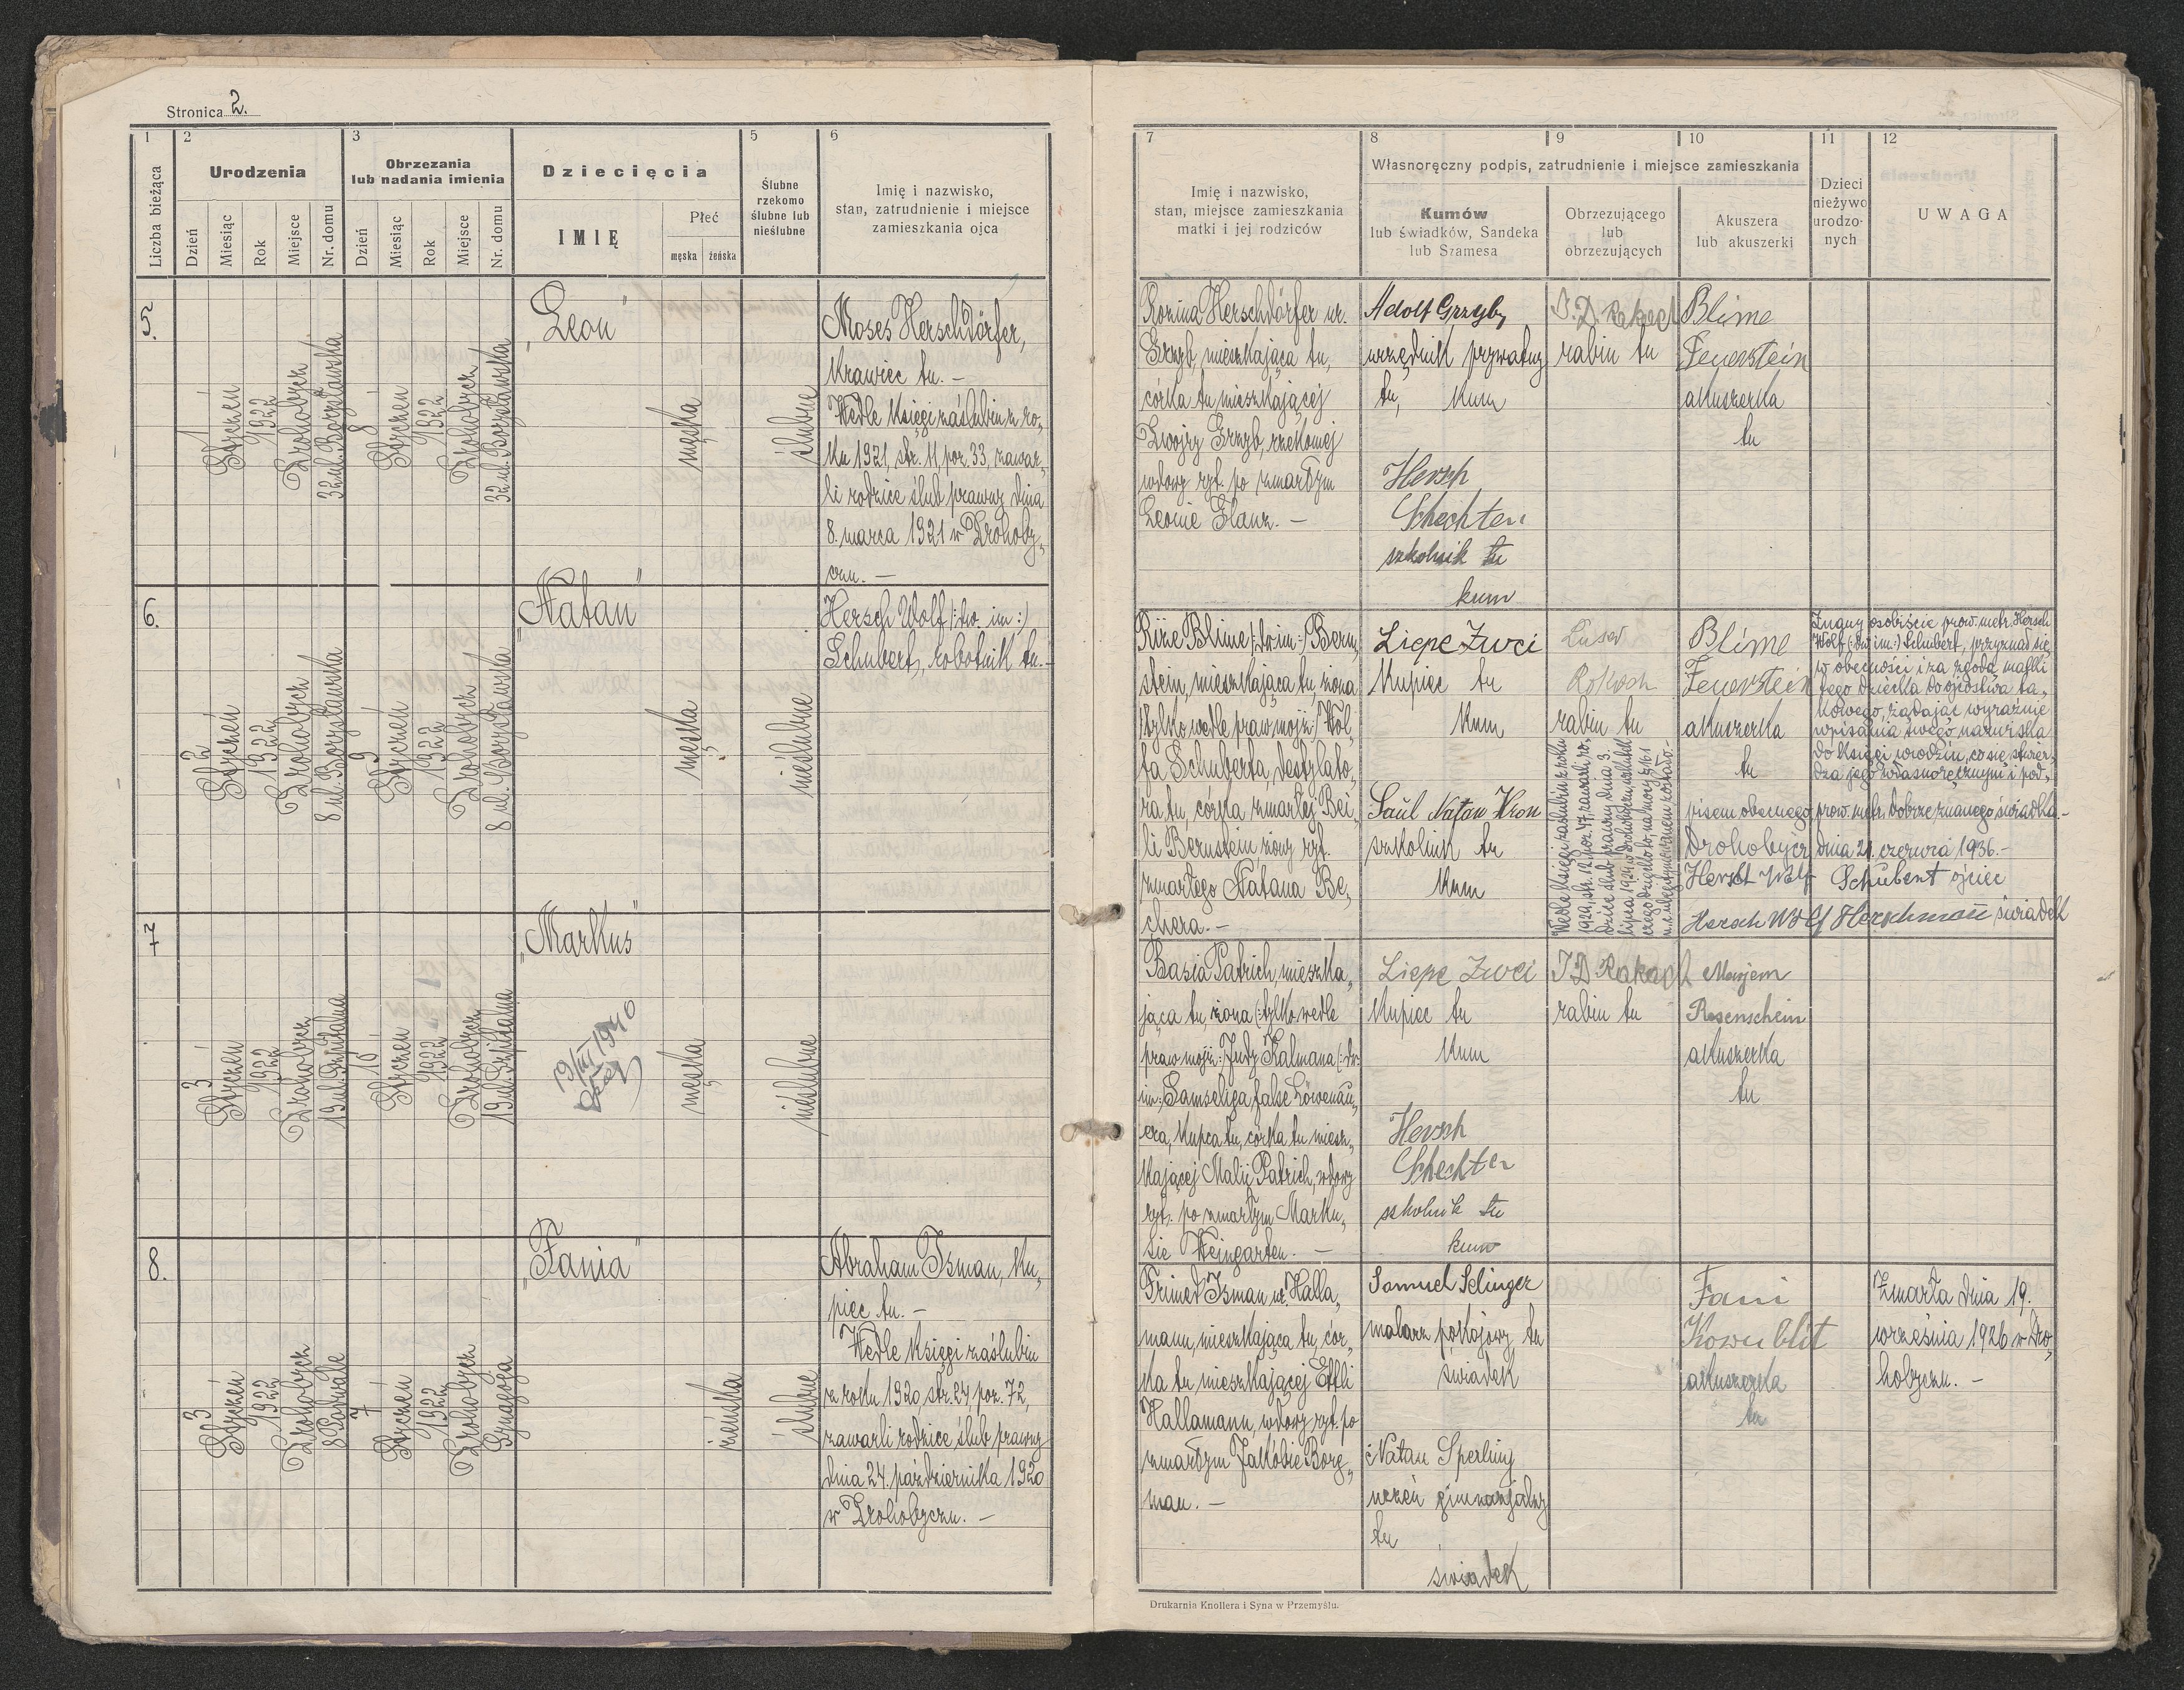 Stronica 2.
1
2
3
5
6
Liczba bieżąca
Urodzenia
Dzień
Miesiąc
Rok
Miejsce
Nr. domu
Obrzezania
lub nadania imienia
Dzień
Miesiąc
Rok
Miejsce
Nr. domu
Dziecięcia
IMIĘ
Płeć
męska
żeńska
Ślubne
rzekomo
ślubne lub
nieślubne
Imię i nazwisko,
stan, zatrudnienie i miejsce
zamieszkania ojca
5.
1
Styczeń
1922
Drohobycz
32 ul. Borysławska
8
Styczeń
1922
Drohobycz
32 ul. Borysławska
"Leon"
męska
ślubne
Moses Herschdörfer,
krawiec tu. —
Wedle księgi zaślubin z ro„
ku 1921, str. 11, poz. 33, zawar„
li rodzice ślub prawny dnia
8. marca 1921 w Drohoby„
czu. —
6.
2
Styczeń
1922
Drohobycz
8 ul. Borysławska
9
Styczeń
1922
Drohobycz
8 ul. Borysławska
"Natan"
męska
nieślubne
Hersch Wolf (: dw. im :)
Schubert, robotnik tu. —
7
3
Styczeń
1922
Drohobycz
19 ul. Szpitalna
10
Styczeń
1922
Drohobycz
19 ul. Szpitalna
"Markus"
męska
nieślubne
8.
3
Styczeń
1922
Drohobycz
8 Podwale
7
Styczeń
1922
Drohobycz
Synagoga
"Fania"
żeńska
ślubne
Abraham Isman, ku„
piec tu. —
Wedle księgi zaślubin
z roku 1920, str. 24, poz. 72,
zawarli rodzice ślub prawny
dnia 24. października 1920
w Drohobyczu. —
7
8
9
10
11
12
Imię i nazwisko,
stan, miejsce zamieszkania
matki i jej rodziców
Własnoręczny podpis, zatrudnienie i miejsce zamieszkania
Kumów
lub świadków, Sandeka
lub Szamesa
Obrzezującego
lub
obrzezujących
Akuszera
lub akuszerki
Dzieci
nieżywo
urodzo-
nych
UWAGA
Rozina Herschdörfer ur.
Grzyb, mieszkająca tu,
córka tu mieszkającej
Dwojry Grzyb, rzekomej
wdowy ryt. po zmarłym
Leonie Glanz. —
Adolf Grzyb
urzędnik prywatny
tu, kum
Hersch
Schechter
szkolnik tu
kum
J. D. Rokach
rabin tu
Blime
Feuerstein
akuszerka
tu
Rize Blime (: dw. im :) Bern„
stein, mieszkająca tu, żona
(: tylko wedle praw mojż :) Wol„
fa Schuberta, destylato„
ra tu, córka zmarłej Bei„
li Bernstein, żony ryt.
zmarłego Natana Be„
chera. —
Liepe Zwei
kupiec tu
kum
Saul Natan Kron
szkolnik tu
kum
Rokach
rabin tu
Wedle księgi zaślubin z roku
1924, str. 12, poz. 47, zawarli ro„
dzice ślub prawny dnia 3.
lipca 1924 w Drohobyczu, wskutek
czego dziecko to, na mocy § 161
u. c. ulegitymowanem zostało. —
Blime
Feuerstein
akuszerka
tu
Znany osobiście prow. metr. Hersch
Wolf (: dw. im :) Schubert, przyznał się
w obecności i za zgodą matki
tego dziecka do ojcostwa ta„
kowego, żądając wyraźnie
wpisania swego nazwiska
do księgi urodzin, co się stwier„
dza jego własnoręcznym i pod„
pisem obecnego prow. metr. dobrze znanego świadka. —
Drohobycz dnia 21. czerwca 1936. —
Hersch Wolf Schubert ojciec
Hersch Wolf Herschmann świadek
Basia Patrich, mieszka„
jąca tu, żona (: tylko wedle
praw mojż: Judy Kalmana (: dw.
im :) Samseliga false Löwenau„
era, kupca tu, córka tu miesz„
kającej Malii Patrich, wdowy
ryt. po zmarłym Marku„
sie Weingarten. —
Liepe Zwei
kupiec tu
kum
Hersch
Schechter
szkolnik tu
kum
J D Rokach
rabin tu
Marjem
Rosenschein
akuszerka
tu
Frimet Isman ur. Halla„
mann, mieszkająca tu, cór„
ka tu mieszkającej Etli
Hallamann, wdowy ryt. po
zmarłym Jakóbie Borg„
man. —
Samuel Selinger
malarz pokojowy tu
świadek
Natan Sperling
uczeń gimnazjalny
tu
świadek
Fani
Kornblit
akuszerka
tu
Zmarła dnia 19.
września 1926 w Dro„
hobyczu. —
Drukarnia Knollera i Syna w Przemyślu.